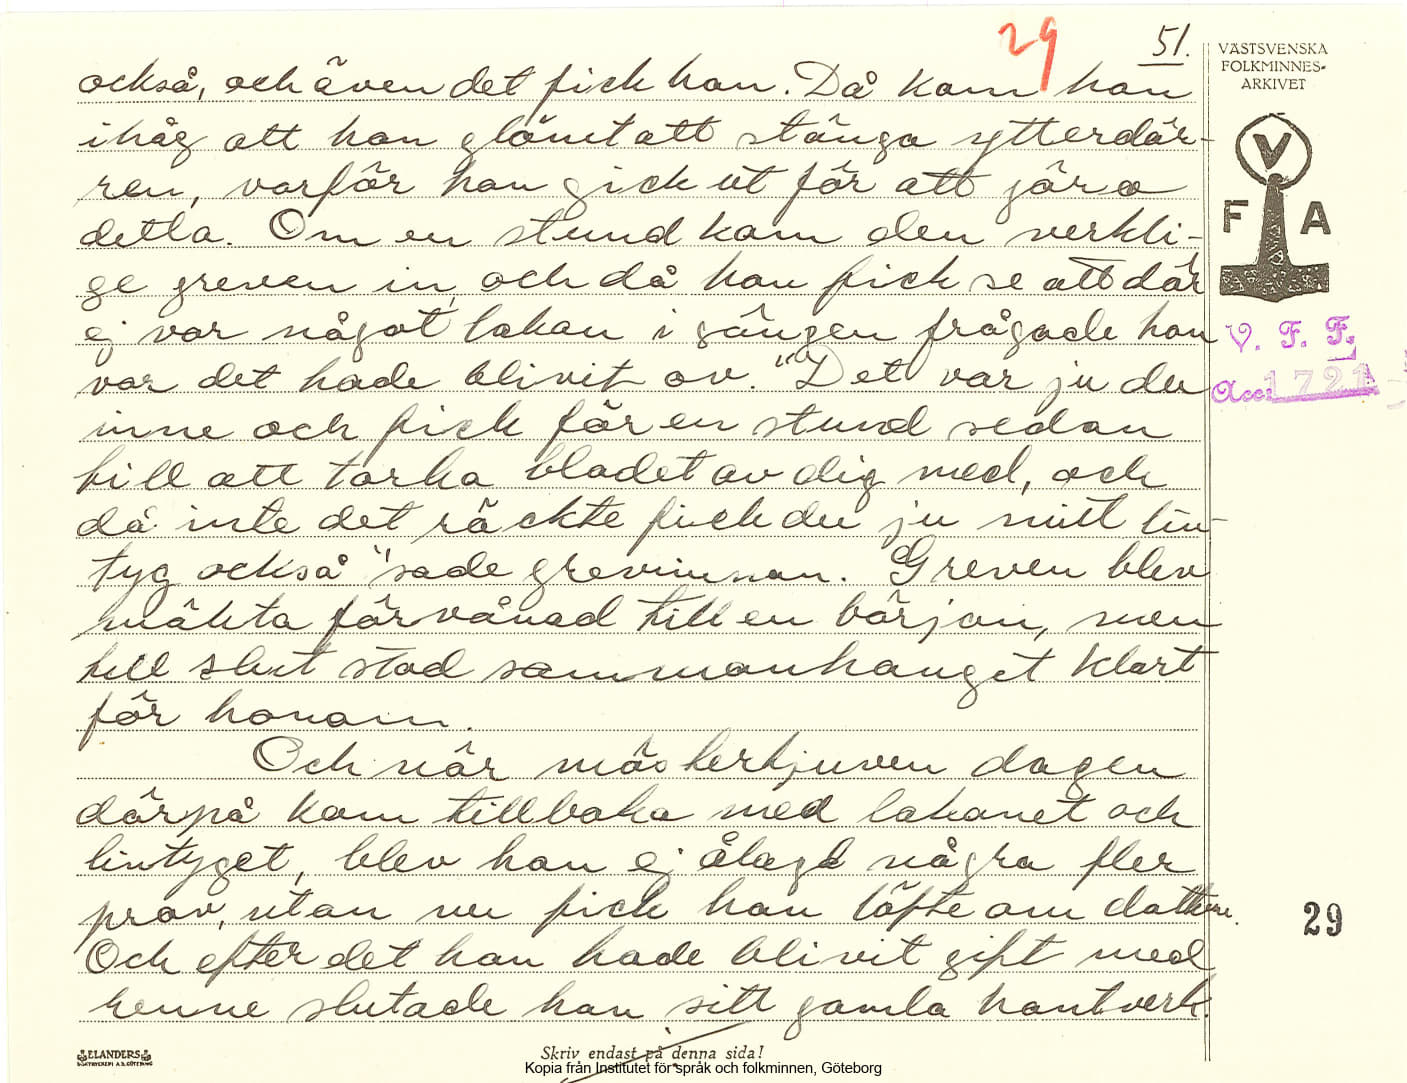 29
51.
VÄSTSVENSKA
FOLKMINNES-
ARKIVET
V
F A
också, och även det fick han. Då kom han
ihåg att han glömt att stänga ytterdör-
ren, varför han gick ut för att göra
detta. Om en stund kom den verkli-
ge greven in, och då han fick se att där
ej var något lakan i sängen frågade han
var det hade blivit av. "Det var ju du
inne och fick för en stund sedan
till att torka blodet av dig med, och
då inte det räckte fick du ju mitt lin-
tyg också" sade grevinnan. Greven blev
mäkta förvånad till en början, men
till slut stod sammanhanget klart
för honom.
Och när mästertjuven dagen
därpå kom tillbaka med lakanet och
lintyget, blev han ej ålagd några fler
prov, utan nu fick han löfte om dottern.
Och efter det han hade blivit gift med
henne slutade han sitt gamla hantverk.
V. F. F.
Acc. 1721
29
ELANDERS
BOKTRYCKERI A.B. GÖTEBORG
Skriv endast på denna sida!
Kopia från Institutet för språk och folkminnen, Göteborg